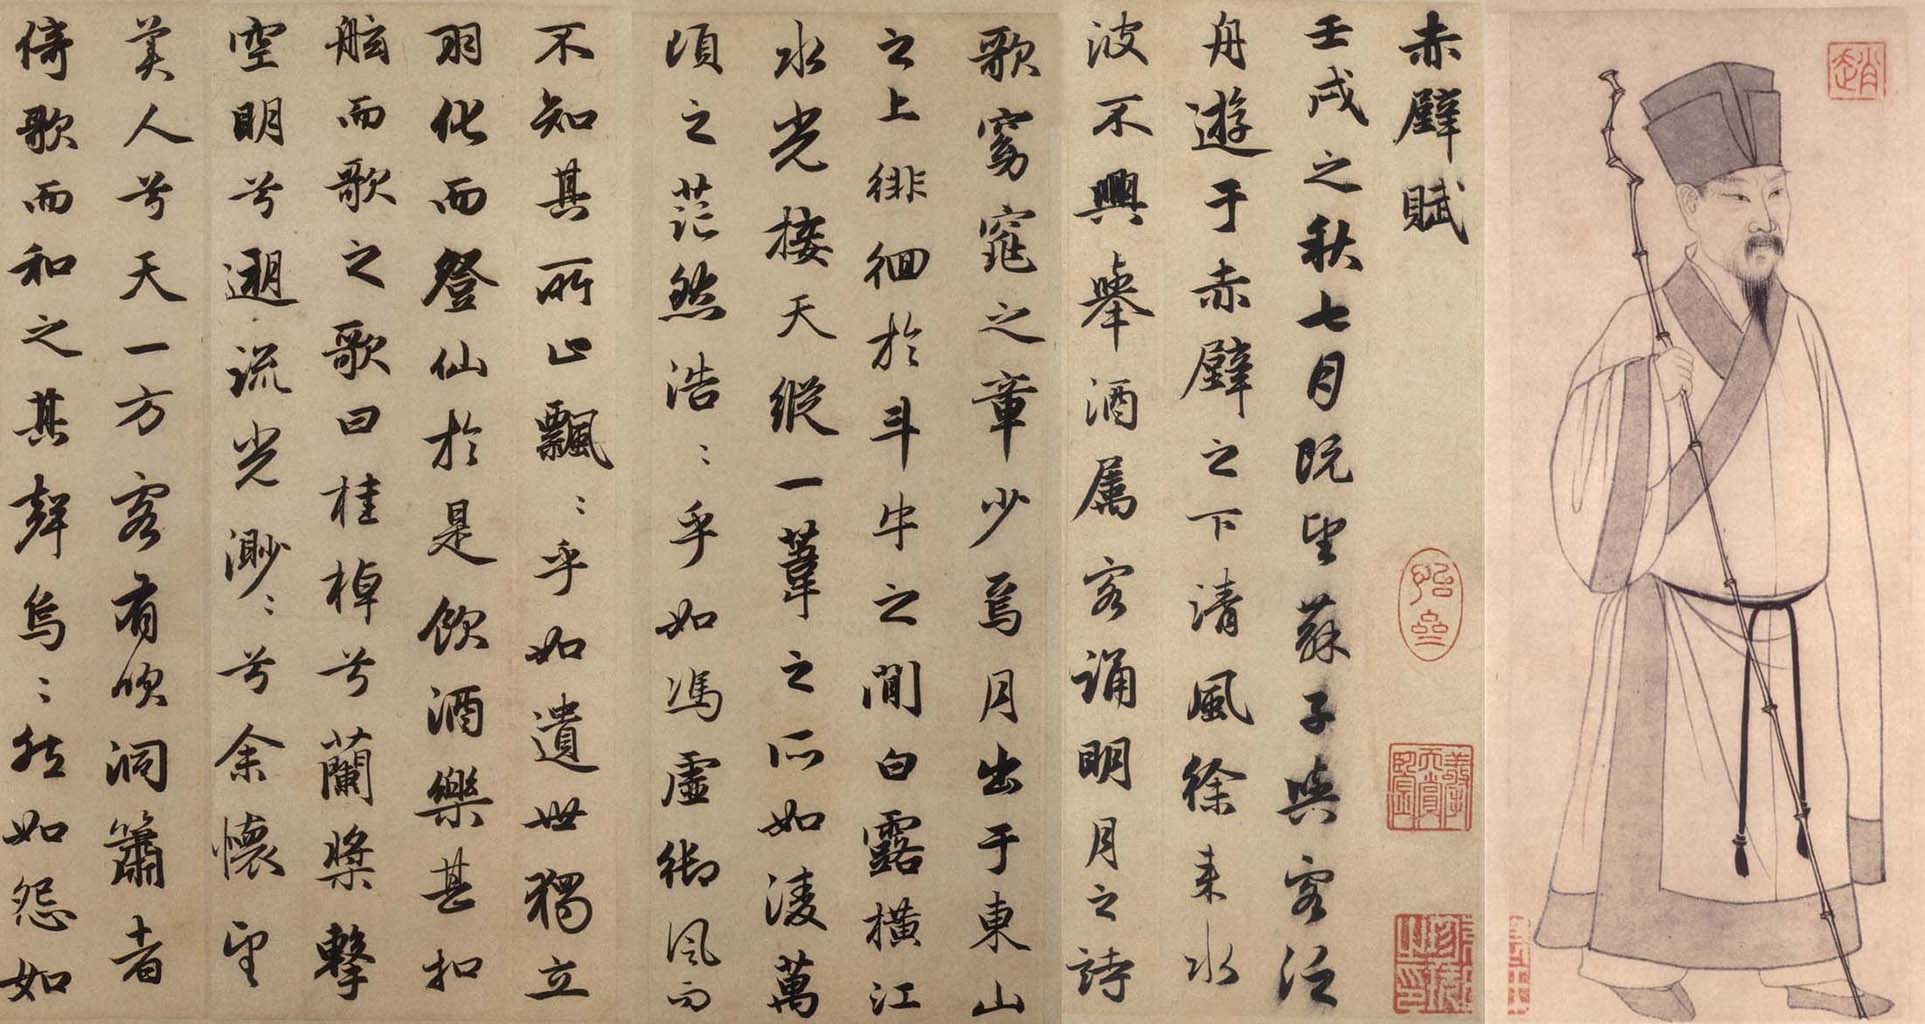 赤壁賦
壬戌之秋七月既望蘇子與客泛
舟遊于赤壁之下清風徐来水
波不興舉酒属客誦明月之詩
歌窈窕之章少焉月出于東山
之上徘徊於斗牛之間白露橫江
水光接天縱一葦之所如凌萬
頃之茫然浩:乎如馮虛御風而
不知其所止飄:乎如遺世獨立
羽化而登仙於是飲酒樂甚扣
舷而歌之歌曰桂棹兮蘭槳擊
空明兮遡流光渺:兮余懷望
美人兮天一方客有吹洞簫者
倚歌而和之其聲烏:然如怨如